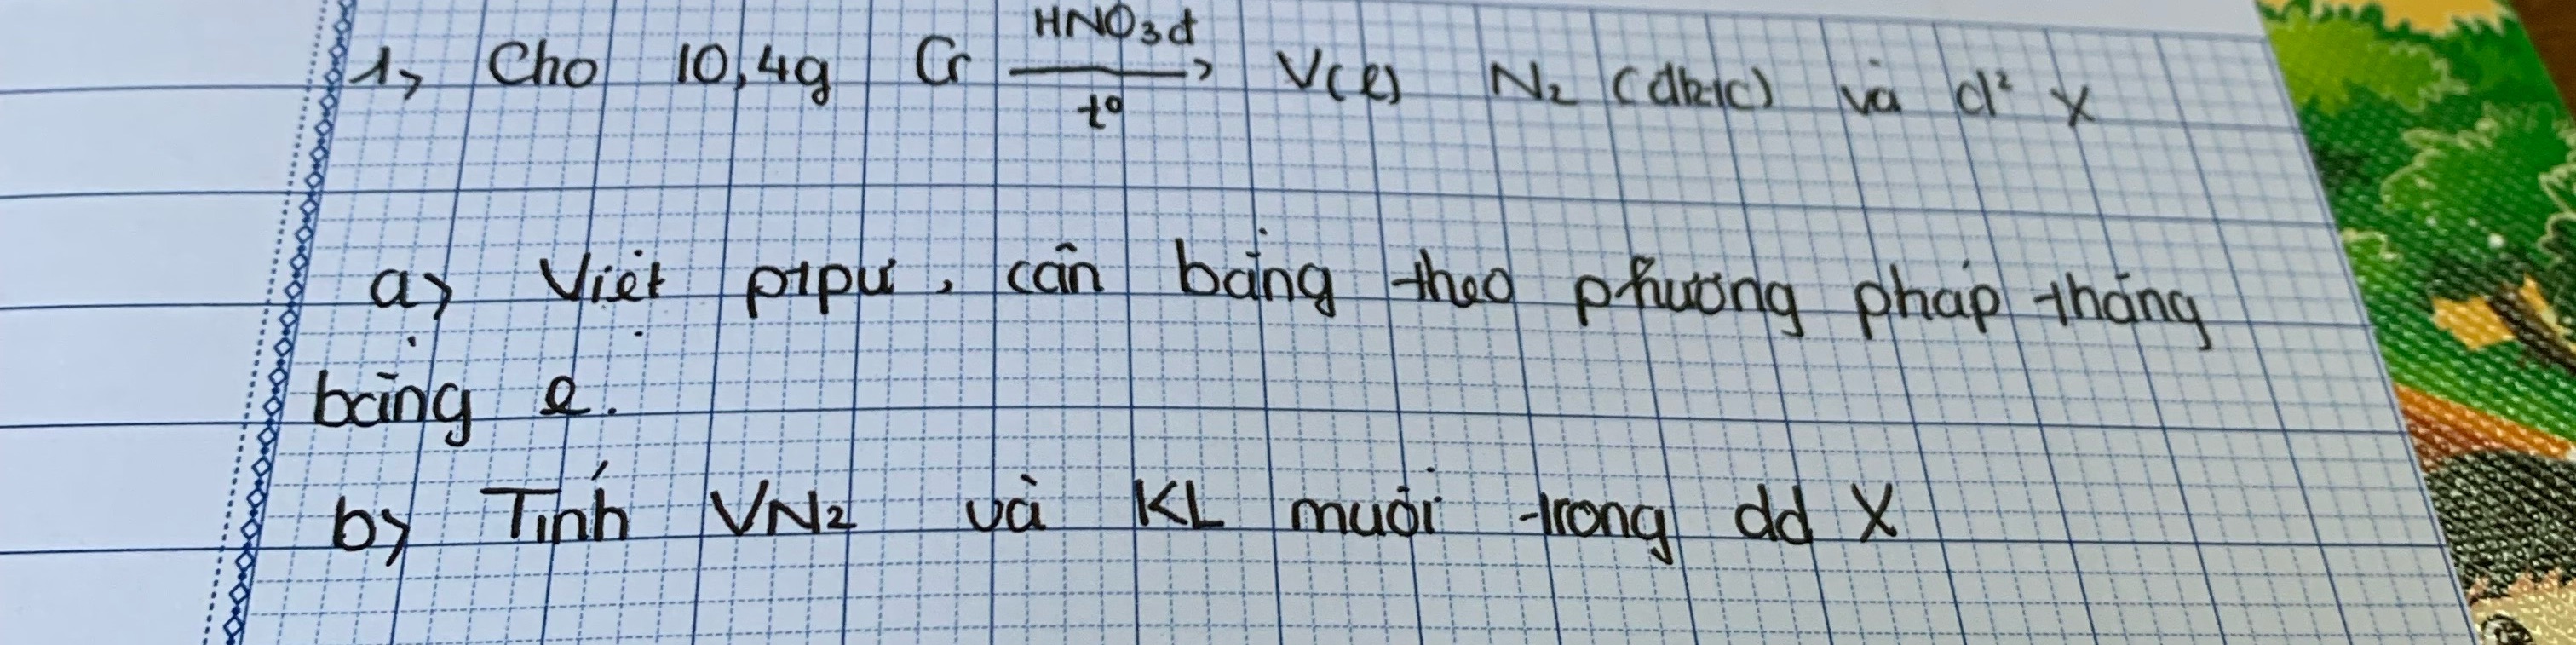 1, Cho 10,4g Cr HNO3đ t° → V(l) N2 (đktc) và d² X
a, Viết ptpư, cân bằng theo phương pháp thăng
bằng e.
b, Tính VN2 và KL muối trong dd X